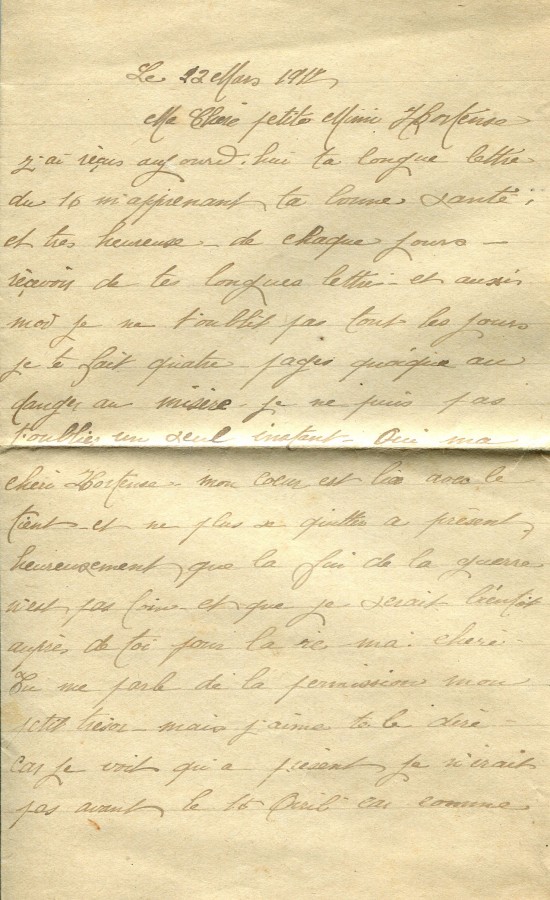 Le 22 Mars 1917
Ma Chère petite Mimi Hortense
j'ai réçus aujourd'hui ta longue lettre
du 16 m'apprenant ta bonne santé,
et tres heureuse de chaque jours
réçevoir de tes longues lettre et aussi
moi je ne t'oublit pas tout les jours
je te fait quatre pages quoique au
danger au misère je ne puis pas
t'oublier un seul instant Oui ma
chéri Hortense mon coeur est lié avec le
tient et ne plus se quitter a présent,
heureusement que la fin de la guerre
n'est pas loine et que je serait bientôt
auprès de toi pour la vie ma cheri
Tu me parle de la permission mon
petit trésor mais j'aime te le dire
car je voit qu'a présent je n'irait
pas avant le 15 Avril car comme